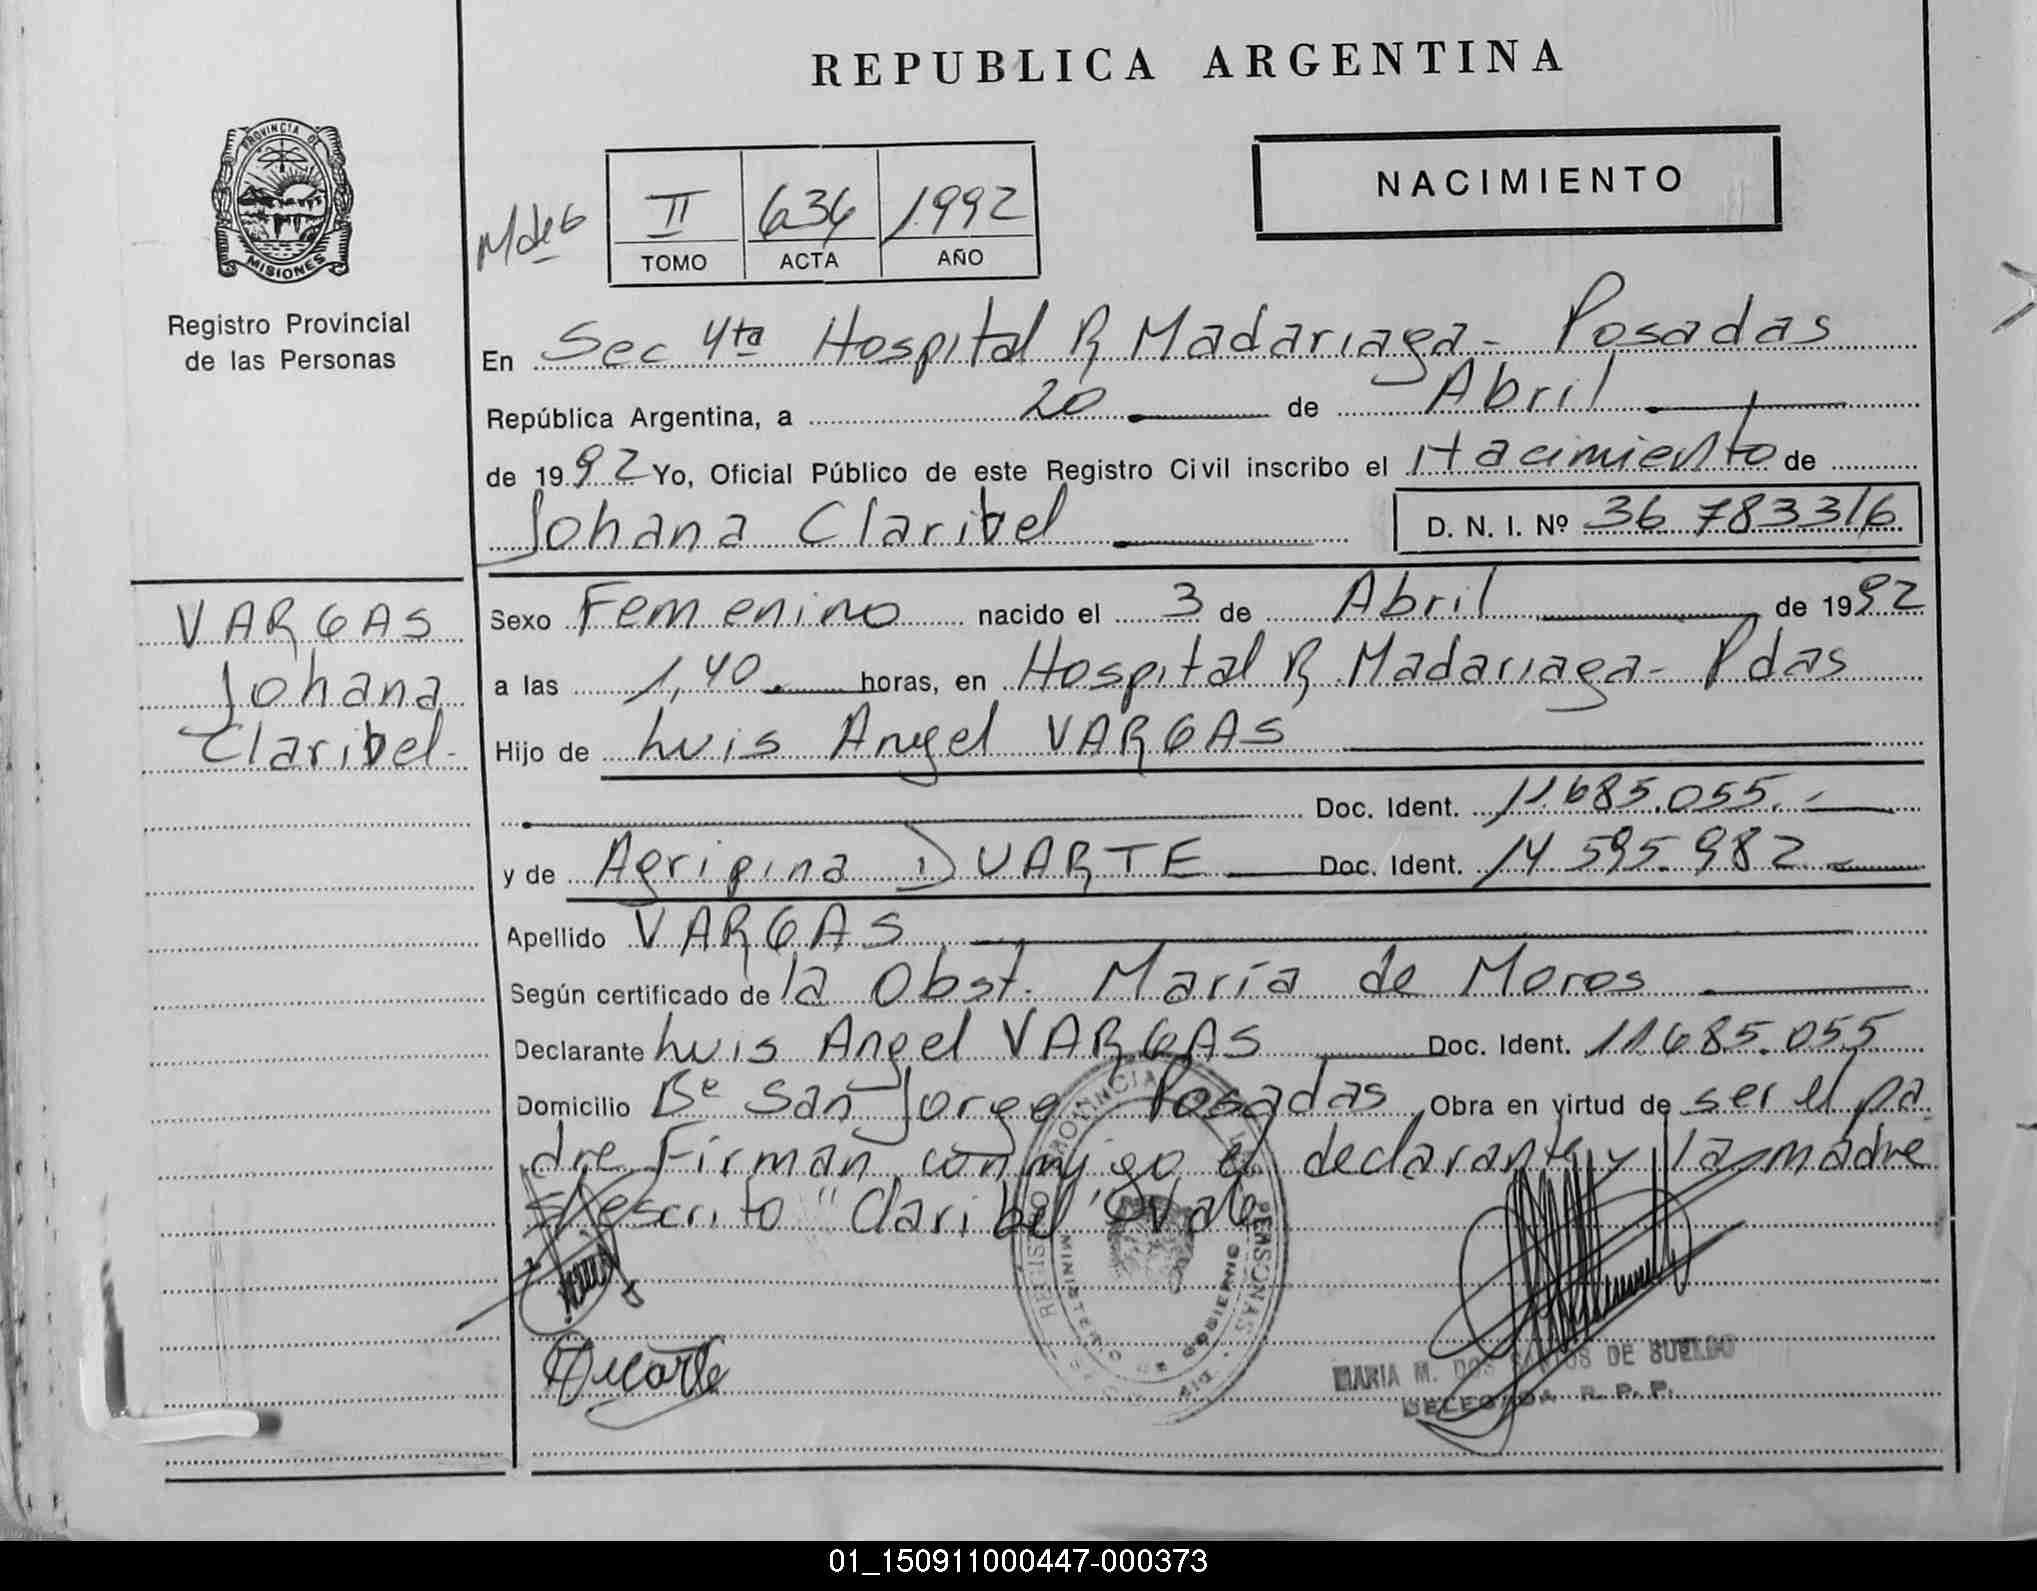 REPUBLICA ARGENTINA
PROVINCIA DE
MISIONES
Registro Provincial
de las Personas
NACIMIENTO
II 636 1992
TOMO ACTA AÑO
En Sec 4ta Hospital R Madariaga - Posadas
República Argentina, a 20 de Abril
de 1992 Yo, Oficial Público de este Registro Civil inscribo el Nacimiento de
Johana Claribel D. N. I. Nº 36 783316
VARGAS
Johana
Claribel-
Sexo Femenino nacido el 3 de Abril de 1992
a las 1,40 horas, en Hospital R Madariaga - Pdas
Hijo de Luis Angel VARGAS
Doc. Ident. 11.685.055.-
y de Agripina DUARTE Doc. Ident. 14 595.982
Apellido VARGAS
Según certificado de la Obst. María de Moros
Declarante Luis Angel VARGAS Doc. Ident. 11.685.055
Domicilio Bº San Jorge Posadas Obra en virtud de ser el pa
dre Firman conmigo el declarante y la madre
S/escrito "Claribel" Vale
Duarte
MARIA M. DOS SANTOS DE SUELDO
DELEGADA R. P. P.
01_150911000447-000373